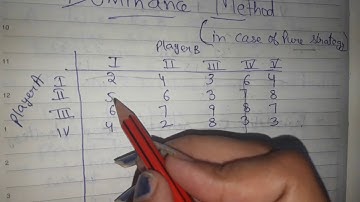 Dominance Method
(in case of Pure strategy)
Player B
I II III IV V
Player A
I 2 4 3 6 4
II 5 6 3 7 8
III 6 7 9 8 7
IV 4 2 8 3 3